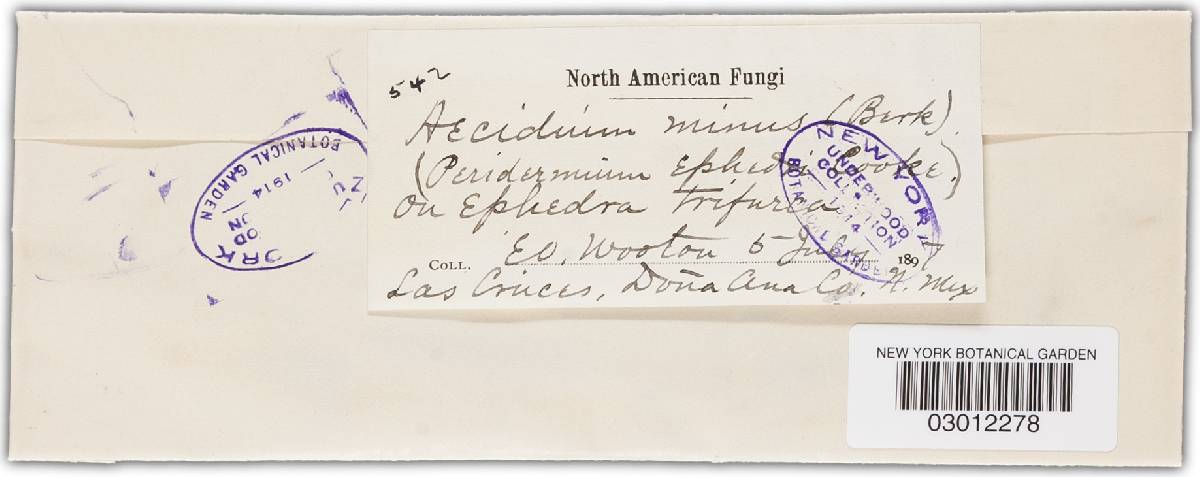 542
North American Fungi
Aecidium minus (Berk).
(Peridermium Ephedrae Cooke.)
on Ephedra trifurca
Coll. E.O. Wooton 5 July 1897
Las Cruces, Doña Ana Co. N. Mex
NEW YORK
UNDERWOOD
COLLECTION
1914
BOTANICAL GARDEN
ORK
OD
ON
1914
BOTANICAL GARDEN
NEW YORK BOTANICAL GARDEN
03012278